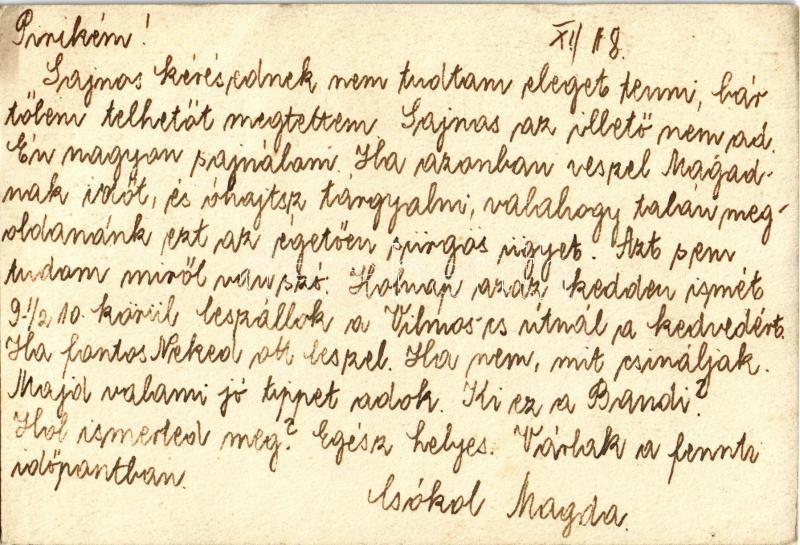 Pirikém! XI/18.
Sajnos kérésednek nem tudtam eleget tenni, bár
tőlem telhetőt megtettem Sajnos az illető nem ad.
Én nagyon sajnálom. Ha azonban veszel Magad-
nak időt, és óhajtsz tárgyalni, valahogy talán meg-
oldanánk ezt az égetően sürgős ügyet. Azt sem
tudom miről van szó. Holnap azaz kedden ismét
9 1/2 10. körül leszállok a Vilmos cs útnál a kedvedért.
Ha fontos Neked ott leszel. Ha nem, mit csináljak.
Majd valami jó tippet adok. Ki ez a Bandi?
Hol ismerted meg? Egész helyes. Várlak a fenti
időpontban.
Csókol Magda.